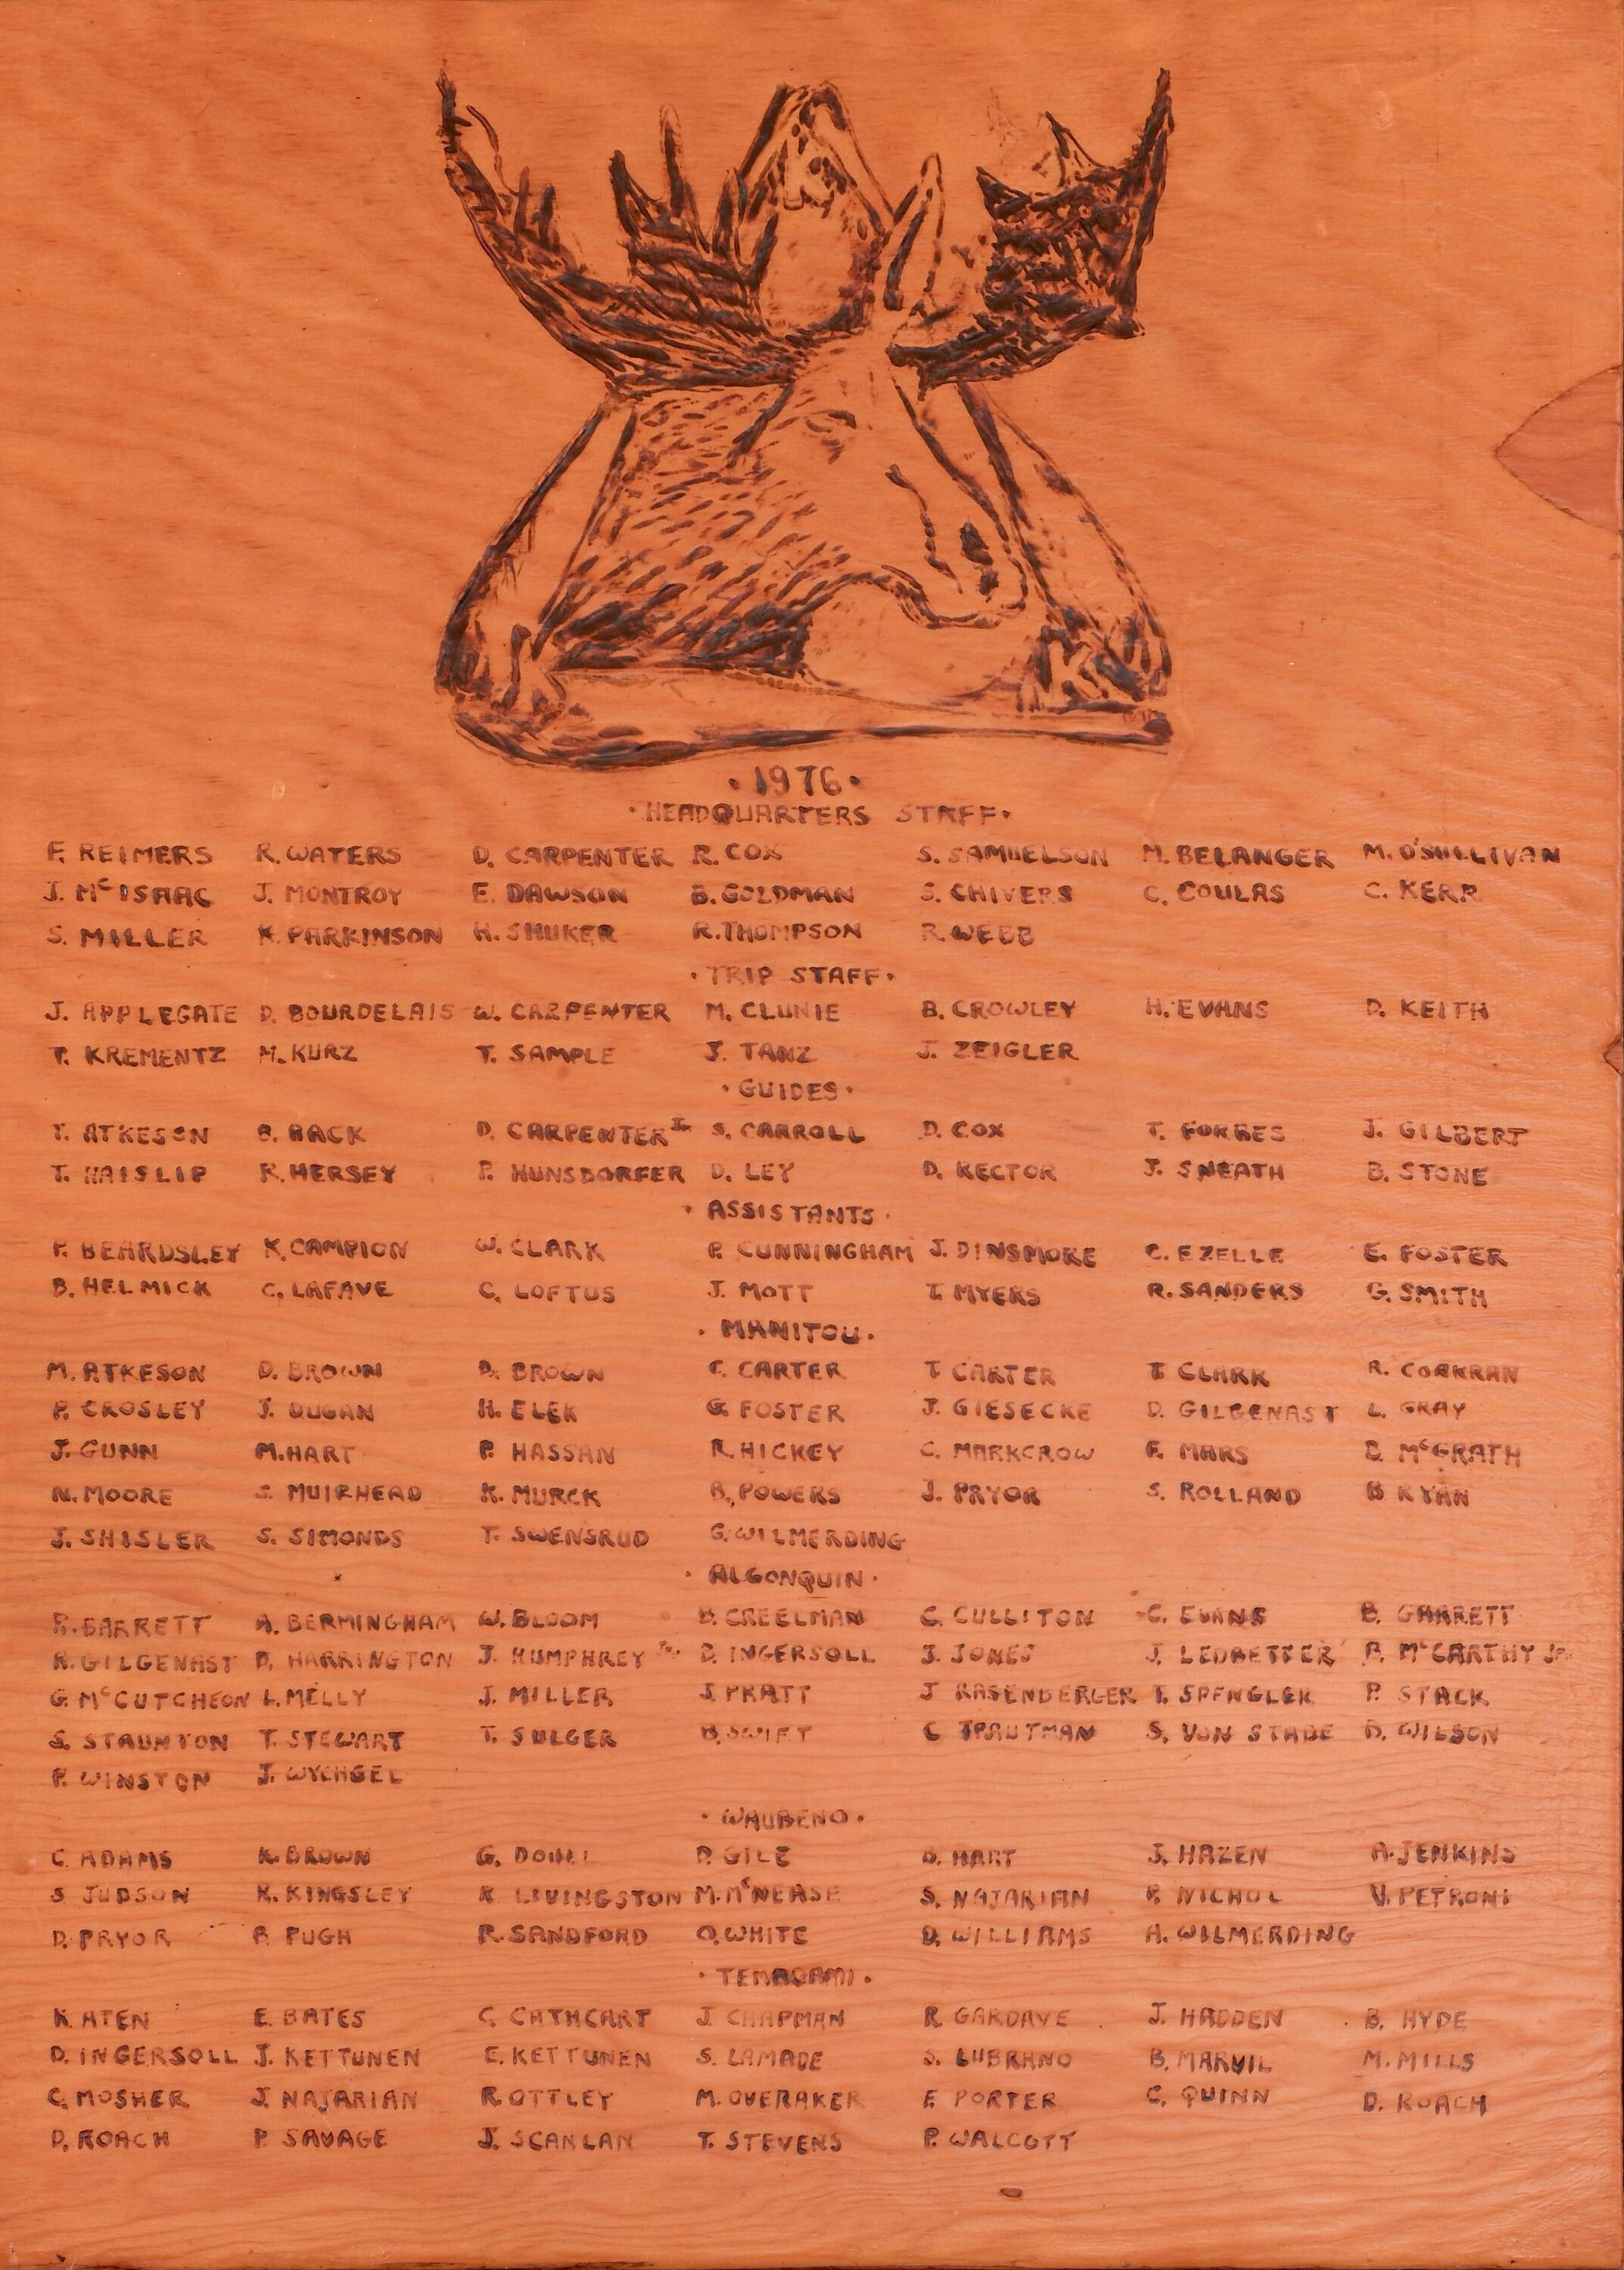 · 1976 ·
· HEADQUARTERS STAFF ·
F. REIMERS R. WATERS D. CARPENTER R. COX S. SAMUELSON M. BELANGER M. O'SULLIVAN
J. McISAAC J. MONTROY E. DAWSON B. GOLDMAN S. CHIVERS C. COULAS C. KERR
S. MILLER K. PARKINSON H. SHUKER R. THOMPSON R. WEBB
· TRIP STAFF ·
J. APPLEGATE D. BOURDELAIS W. CARPENTER M. CLUNIE B. CROWLEY H. EVANS D. KEITH
T. KREMENTZ M. KURZ T. SAMPLE J. TANZ J. ZEIGLER
· GUIDES ·
T. ATKESON B. BACK D. CARPENTER Jr. S. CARROLL D. COX T. FORBES J. GILBERT
T. HAISLIP R. HERSEY P. HUNSDORFER D. LEY D. RECTOR J. SNEATH B. STONE
· ASSISTANTS ·
P. BEARDSLEY K. CAMPION W. CLARK P. CUNNINGHAM J. DINSMORE C. EZELLE E. FOSTER
B. HELMICK C. LAFAVE C. LOFTUS J. MOTT T. MYERS R. SANDERS G. SMITH
· MANITOU ·
M. ATKESON D. BROWN D. BROWN C. CARTER T. CARTER T. CLARK R. CORKRAN
P. CROSLEY J. DUGAN H. ELEK G. FOSTER J. GIESECKE D. GILGENAST L. GRAY
J. GUNN M. HART P. HASSAN R. HICKEY C. MARKCROW F. MARS McGRATH
N. MOORE S. MUIRHEAD K. MURCK B. POWERS J. PRYOR S. ROLLAND B. RYAN
J. SHISLER S. SIMONDS T. SWENSRUD G. WILMERDING
· ALGONQUIN ·
R. BARRETT A. BERMINGHAM W. BLOOM B. CREELMAN C. CULLITON C. EVANS B. GARRETT
R. GILGENAST D. HARRINGTON J. HUMPHREY Jr. D. INGERSOLL J. JONES J. LEDBETTER B. McCARTHY Jr.
G. McCUTCHEON L. MELLY J. MILLER J. PRATT J. RASENBERGER T. SPENGLER P. STACK
S. STAUNTON T. STEWART T. SULGER B. SWIFT C. TRAUTMAN S. VON STADE B. WILSON
P. WINSTON J. WYCHGEL
· WAUBENO ·
C. ADAMS K. BROWN G. P. GILE B. HART J. HAZEN A. JENKINS
S. JUDSON K. KINGSLEY R. LIVINGSTON M. McNEASE S. NAJARIAN P. NICHOL V. PETRONI
D. PRYOR P. PUGH R. SANDFORD O. WHITE D. WILLIAMS A. WILMERDING
· TEMAGAMI ·
K. ATEN E. BATES C. CATHCART J. CHAPMAN R. GARDAVE J. HADDEN B. HYDE
D. INGERSOLL J. KETTUNEN E. KETTUNEN S. LAMADE S. LUBRANO B. MARVIL M. MILLS
C. MOSHER J. NAJARIAN R. OTTLEY M. OVERAKER F. PORTER C. QUINN D. ROACH
D. ROACH P. SAVAGE J. SCANLAN T. STEVENS P. WALCOTT